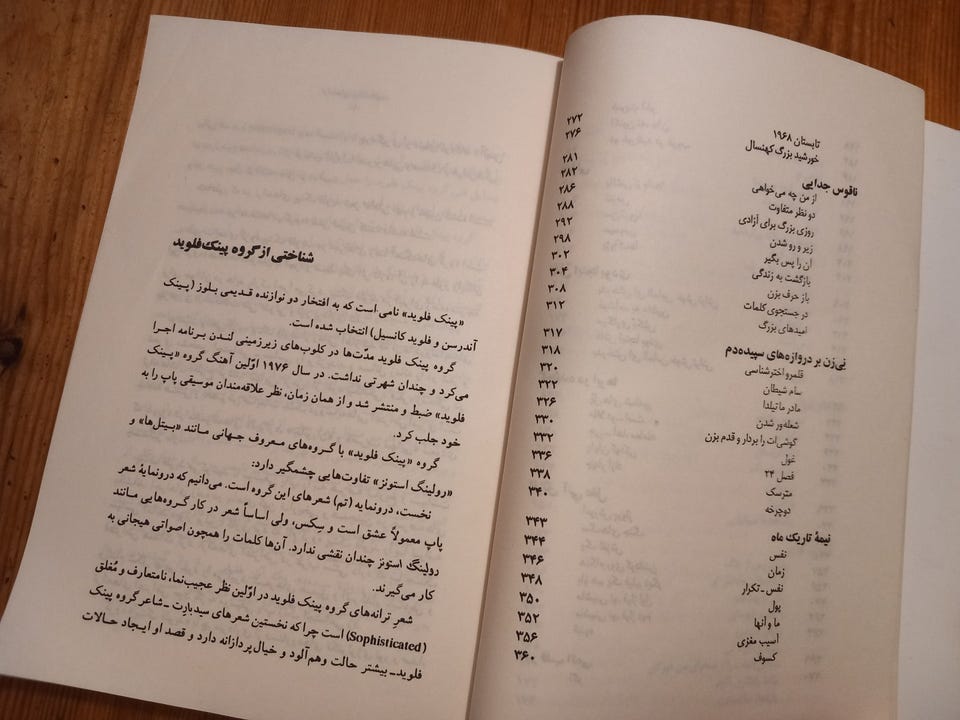 تابستان ۱۹۶۸ ۲۷۲
خورشید بزرگ کهنسال ۲۷۶
ناقوس جدایی ۲۸۱
از من چه می‌خواهی ۲۸۲
دو نظر متفاوت ۲۸۶
روزی بزرگ برای آزادی ۲۸۸
زیر و رو شدن ۲۹۲
آن را پس بگیر ۲۹۸
بازگشت به زندگی ۳۰۲
باز حرف بزن ۳۰۴
در جستجوی کلمات ۳۰۸
امیدهای بزرگ ۳۱۲
نی‌زن بر دروازه‌های سپیده‌دم ۳۱۷
قلمرو اخترشناسی ۳۱۸
سام شیطان ۳۲۰
مادر ماتیلدا ۳۲۲
شعله‌ور شدن ۳۲۶
گوشی‌ات را بردار و قدم بزن ۳۳۰
غول ۳۳۲
فصل ۲۴ ۳۳۶
مترسک ۳۳۸
دوچرخه ۳۴۰
نیمهٔ تاریک ماه ۳۴۳
نفس ۳۴۴
زمان ۳۴۶
نفس ـ تکرار ۳۴۸
پول ۳۵۰
ما و آنها ۳۵۲
آسیب مغزی ۳۵۶
کسوف ۳۶۰
شناختی از گروه پینک فلوید
«پینک فلوید» نامی است که به افتخار دو نوازنده قدیمی بلوز (پینک
آندرسن و فلوید کانسیل) انتخاب شده است.
گروه پینک فلوید مدّت‌ها در کلوب‌های زیرزمینی لندن برنامه اجرا
می‌کرد و چندان شهرتی نداشت. در سال ۱۹۷۶ اوّلین آهنگ گروه «پینک
فلوید» ضبط و منتشر شد و از همان زمان، نظر علاقه‌مندان موسیقی پاپ را به
خود جلب کرد.
گروه «پینک فلوید» با گروه‌های معروف جهانی مانند «بیتل‌ها» و
«رولینگ استونز» تفاوت‌هایی چشمگیر دارد:
نخست، درونمایه (تم) شعرهای این گروه است. می‌دانیم که درونمایهٔ شعر
پاپ معمولاً عشق است و سکس، ولی اساساً شعر در کار گروه‌هایی مانند
رولینگ استونز چندان نقشی ندارد. آن‌ها کلمات را همچون اصواتی هیجانی به
کار می‌گیرند.
شعرِ ترانه‌های گروه پینک فلوید در اوّلین نظر عجیب‌نما، نامتعارف و مُغلق
(Sophisticated) است چرا که نخستین شعرهای سیدبارِت ـ شاعر گروه پینک
فلوید ـ بیشتر حالت وهم‌آلود و خیال‌پردازانه دارد و قصد او ایجاد حالات